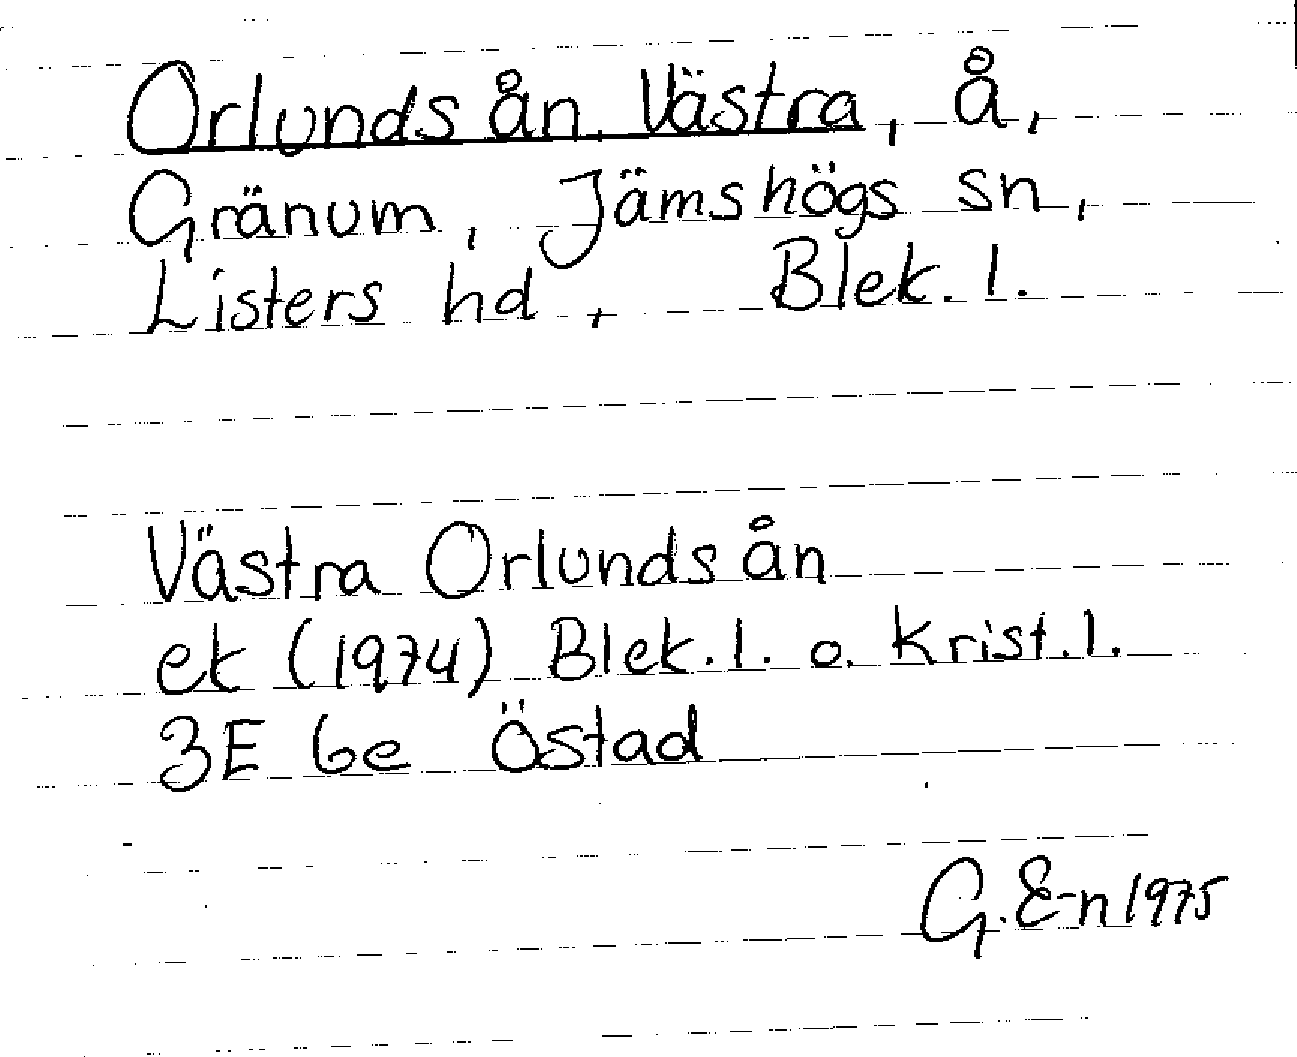 Orlundsån, Västra, å,
Gränum, Jämshögs sn,
Listers hd, Blek. l.
Västra Orlundsån
ek (1974) Blek. l. o. Krist. l.
3E 6e Östad
G. E-n 1975